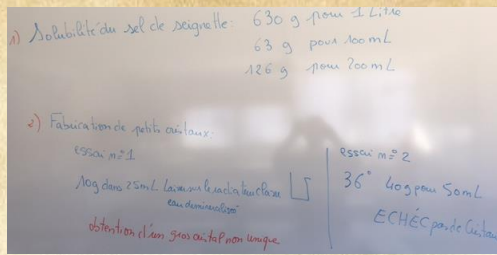 1) Solubilité du sel de seignette: 630 g pour 1 Litre
63 g pour 100 mL
126 g pour 200 mL
2) Fabrication de petits cristaux:
essai n°1
10g dans 25mL
eau demineralisé
obtention d'un gros cristal non unique
essai n°2
36° 40g pour 50mL
ECHEC pas de Cristaux